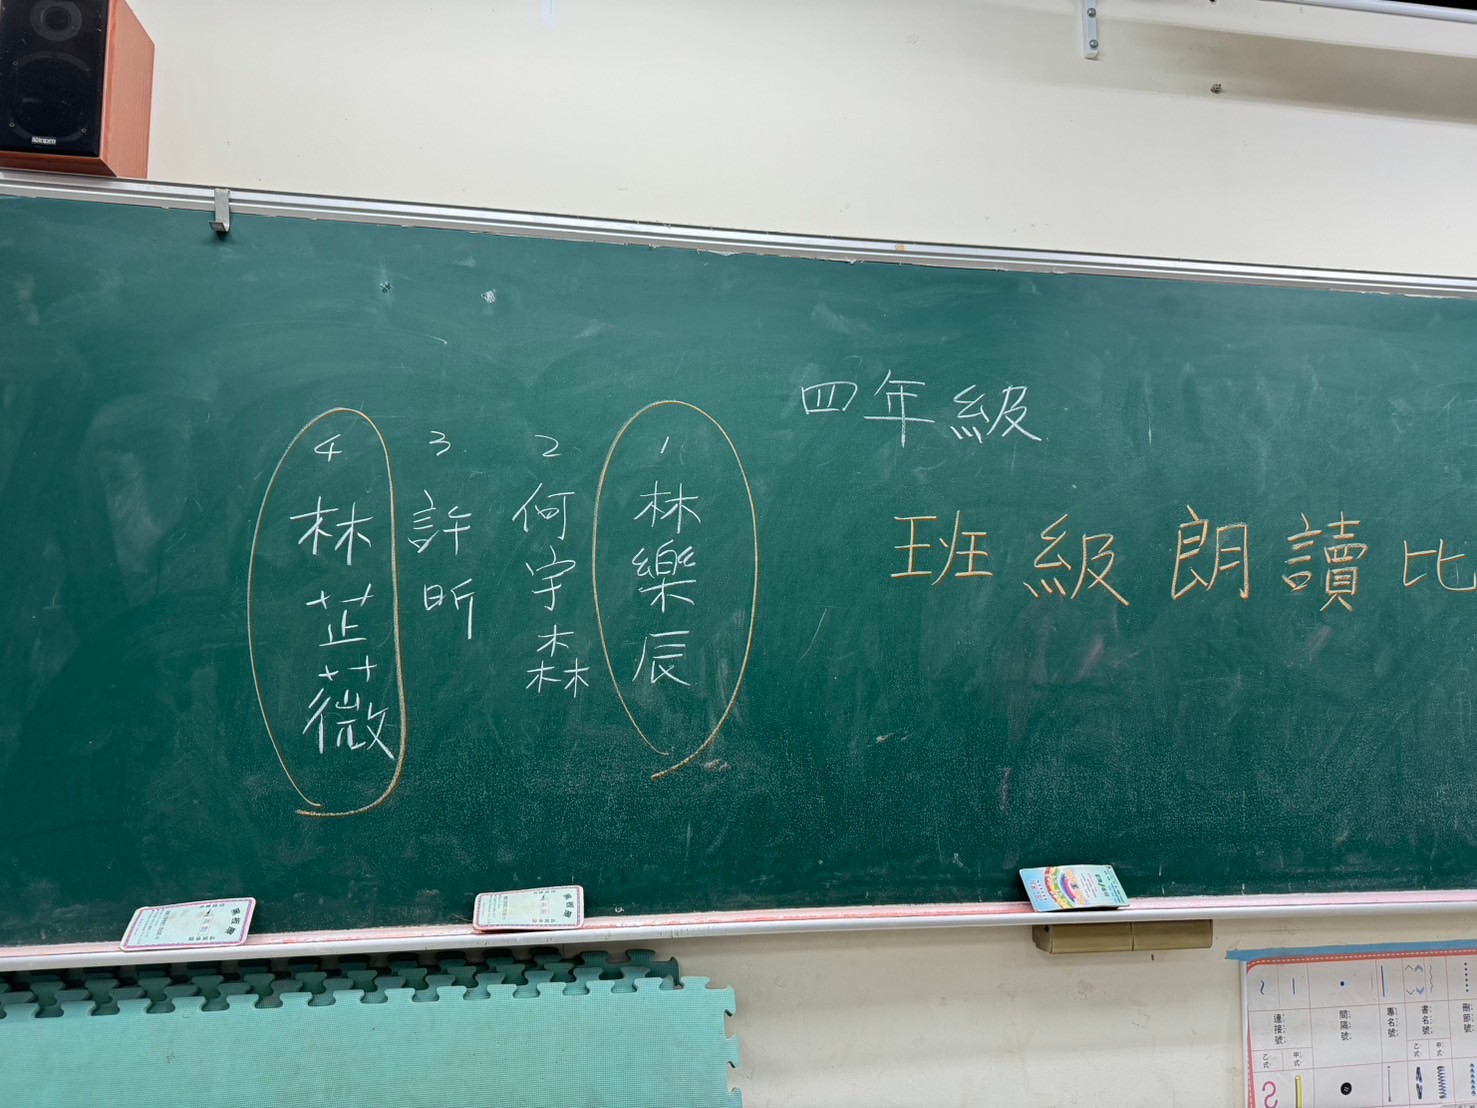 四年級
班級朗讀比
1 林樂辰
2 何宇森
3 許昕
4 林芷薇
連接號
間隔號
專名號
書名號
乙式
甲式
乙式
甲式